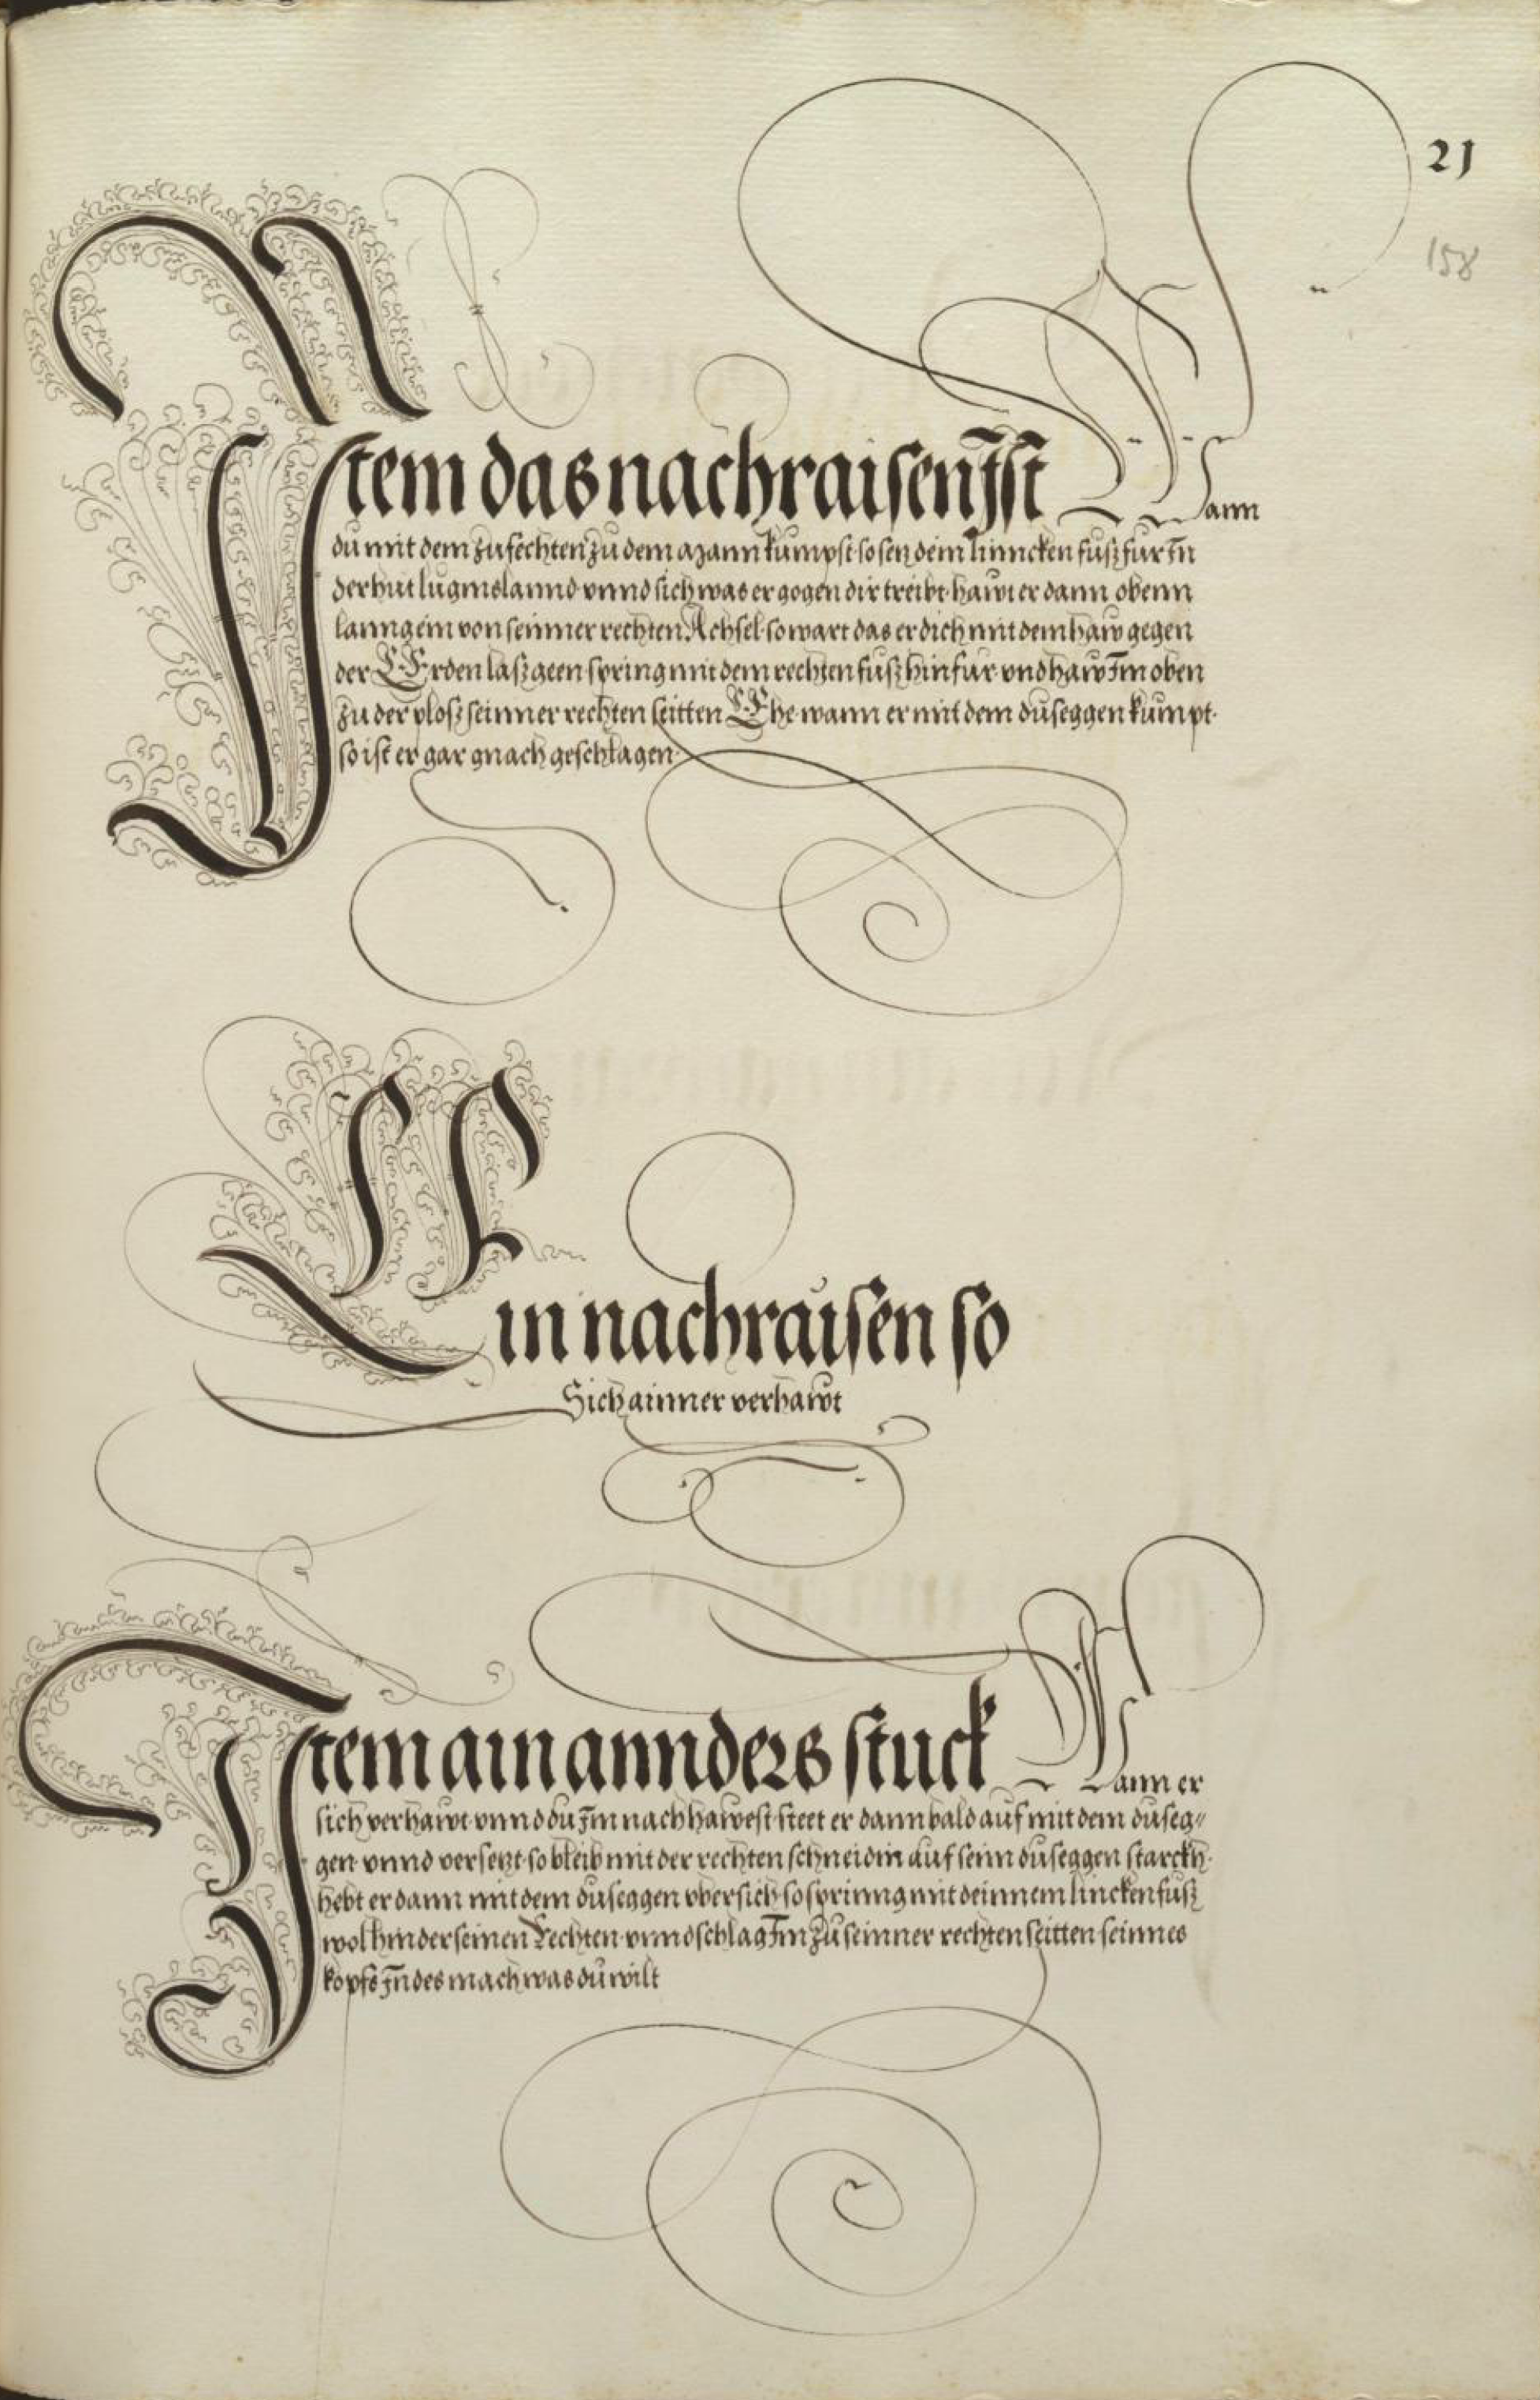 21
158
Item das nachraisen Ist Wann
du mit dem zufechten zu dem Mann kumpst so setz dein linncken fusz fur In
der hut luginslannd vnnd sich was er gegen dir treibt hawt er dann obenn
lanng ein von seinner rechten Achsel so wart das er dich mit dem haw gegen
der Erden lasz geen spring mit dem rechten fusz hinfur vnd haw Im oben
zu der plosz seinner rechten seitten Ehe wann er mit dem duseggen kumpt
so ist er gar gnach geschlagen
Ein nachraisen so
Sich ainner verhawt
Item ain annders stuck Wann er
sich verhawt vnnd du Im nachhawest steet er dann bald auf mit dem duseg〃
gen vnnd versetzt so bleib mit der rechten schneid in auf seim duseggen starckh
hebt er dann mit dem duseggen vbersich so sprinng mit deinnem lincken fusz
wol hinder seinen Rechten vnnd schlag Im zu seinner rechten seitten seinnes
kopfs Indes mach was du wilt